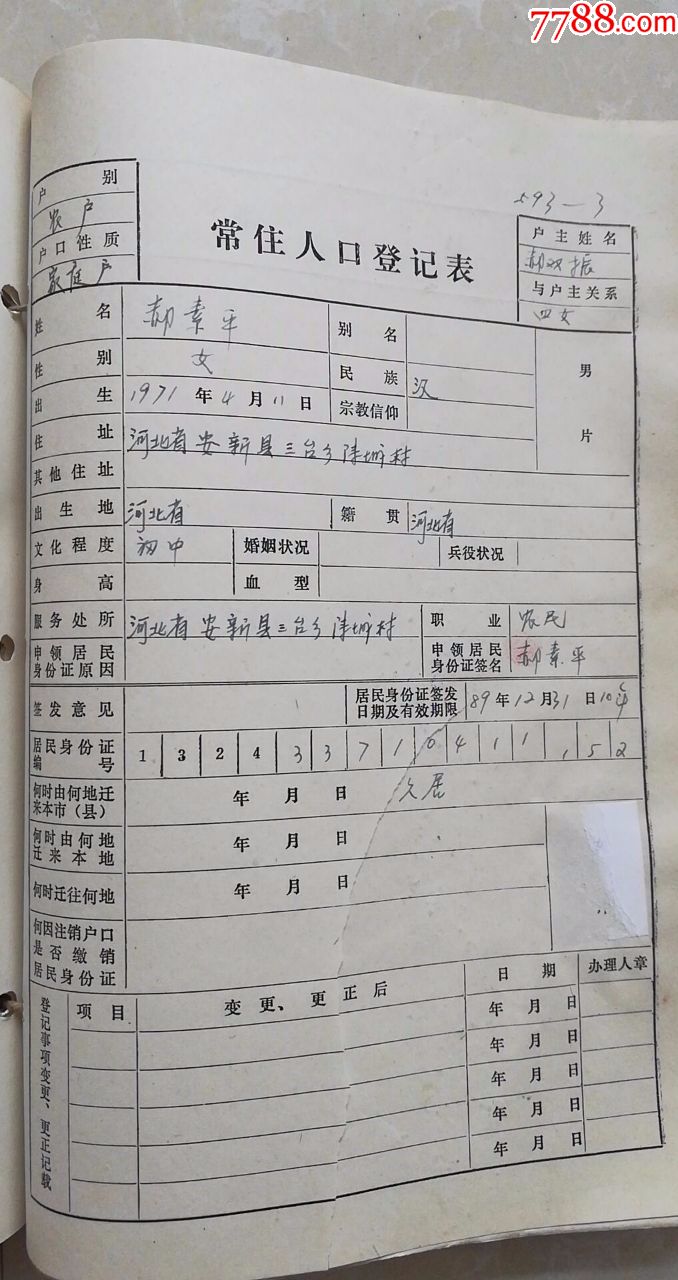 7788.com
593-3
户别
农户
户口性质
家庭户
常住人口登记表
户主姓名
郝双振
与户主关系
四女
姓名 郝素平 别名
性别 女 民族 汉
出生 1971年4月11日 宗教信仰
男 片
住址 河北省安新县三台乡 村
其他住址
出生地 河北省 籍贯 河北省
文化程度 初中 婚姻状况 兵役状况
身高 血型
服务处所 河北省安新县三台乡 村 职业 农民
申领居民身份证原因 申领居民身份证签名 郝素平
签发意见 居民身份证签发日期及有效期限 89年12月31日10年
居民身份证编号 1 3 2 4 3 3 7 1 0 4 1 1 1 5 2
何时由何地迁来本市(县) 年 月 日 久居
何时由何地迁来本地 年 月 日
何时迁往何地 年 月 日
何因注销户口是否缴销居民身份证
登记事项变更、更正记载
项目 变更、更正后 日期 办理人章
年 月 日
年 月 日
年 月 日
年 月 日
年 月 日